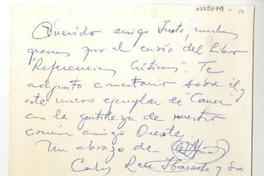 Querido amigo Justo, muchas
gracias por el envío del libro
"Referencias Críticas". Te
adjunto comentario sobre él y
este nuevo ejemplar de
con la gentileza de nuestro
común amigo Oreste.
Un abrazo de
Carlos René Ibacache y